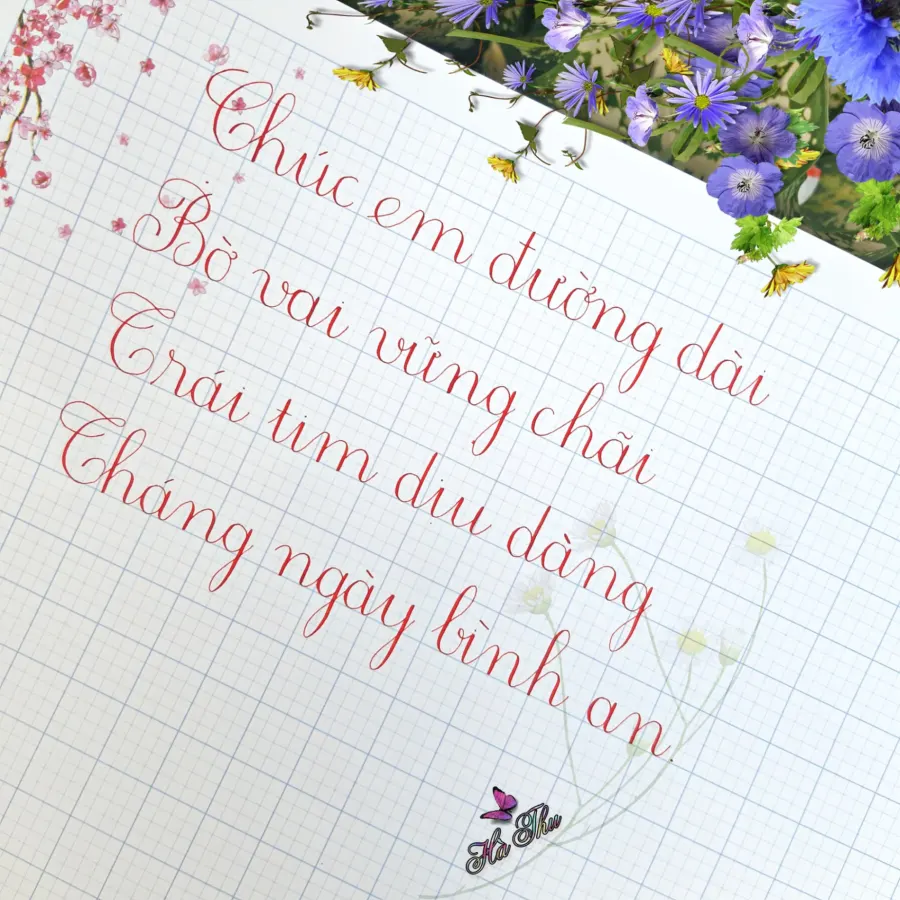 Chúc em đường dài
Bờ vai vững chãi
Trái tim dịu dàng
Tháng ngày bình an.
Hà Thu